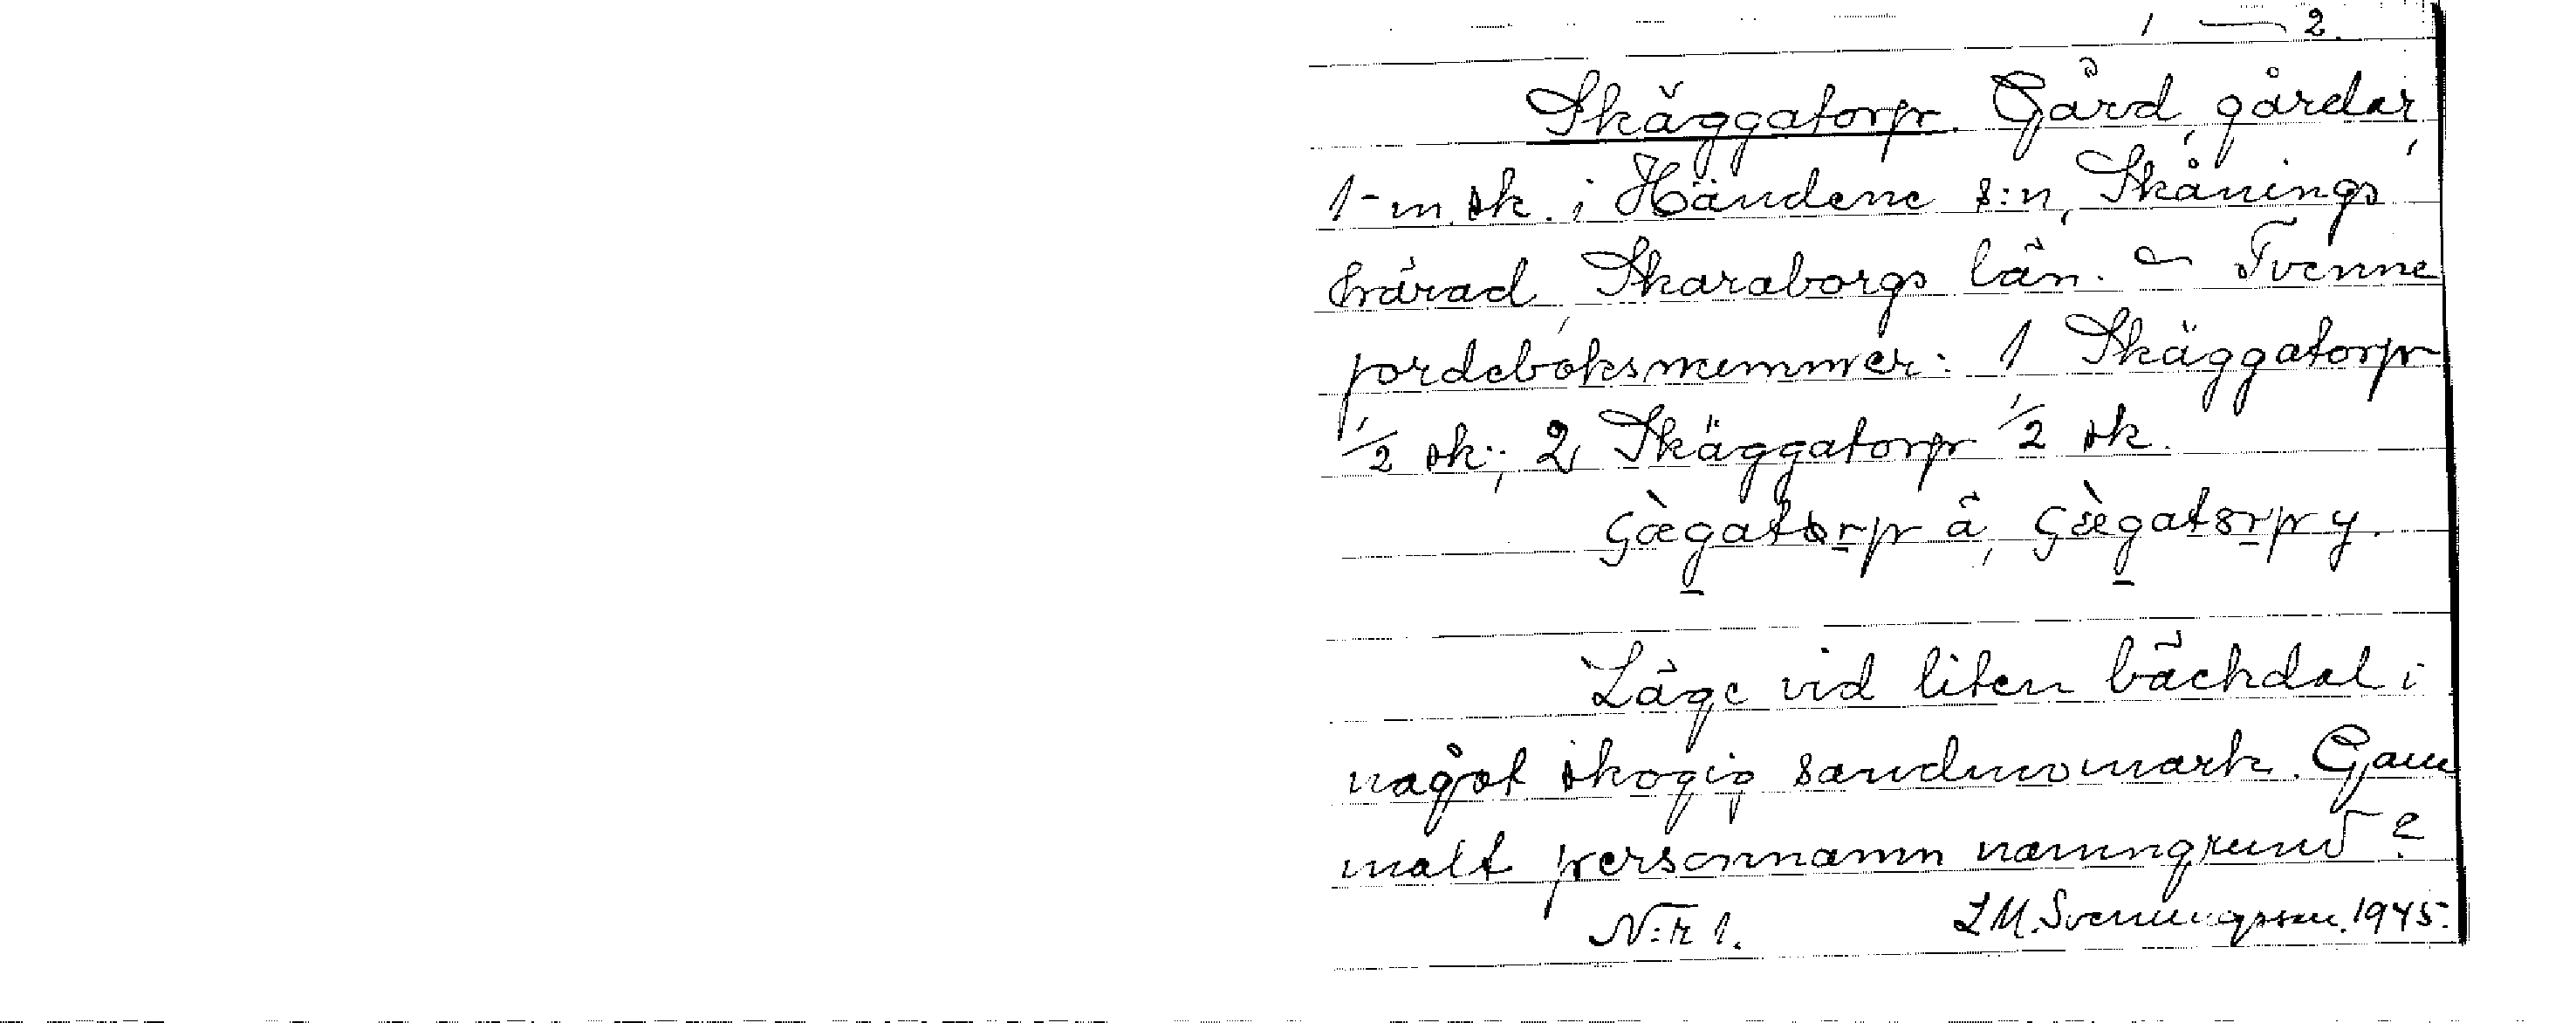 1 — 2.
Skäggatorp. Gård, gårdar,
1 m sk. i Händene s:n, Skånings
härad, Skaraborgs län. ~ Tvenne
jordeboksnummer: 1 Skäggatorp
1/2 sk.; 2 Skäggatorp 1/2 sk.
çæ̀gatorp ä, çæ̀gatorp y.
Läge vid liten bäckdal i
något skogig sandmomark. Gam
malt personnamn namngrund?
N:r 1. L M. Svenungsson. 1945.